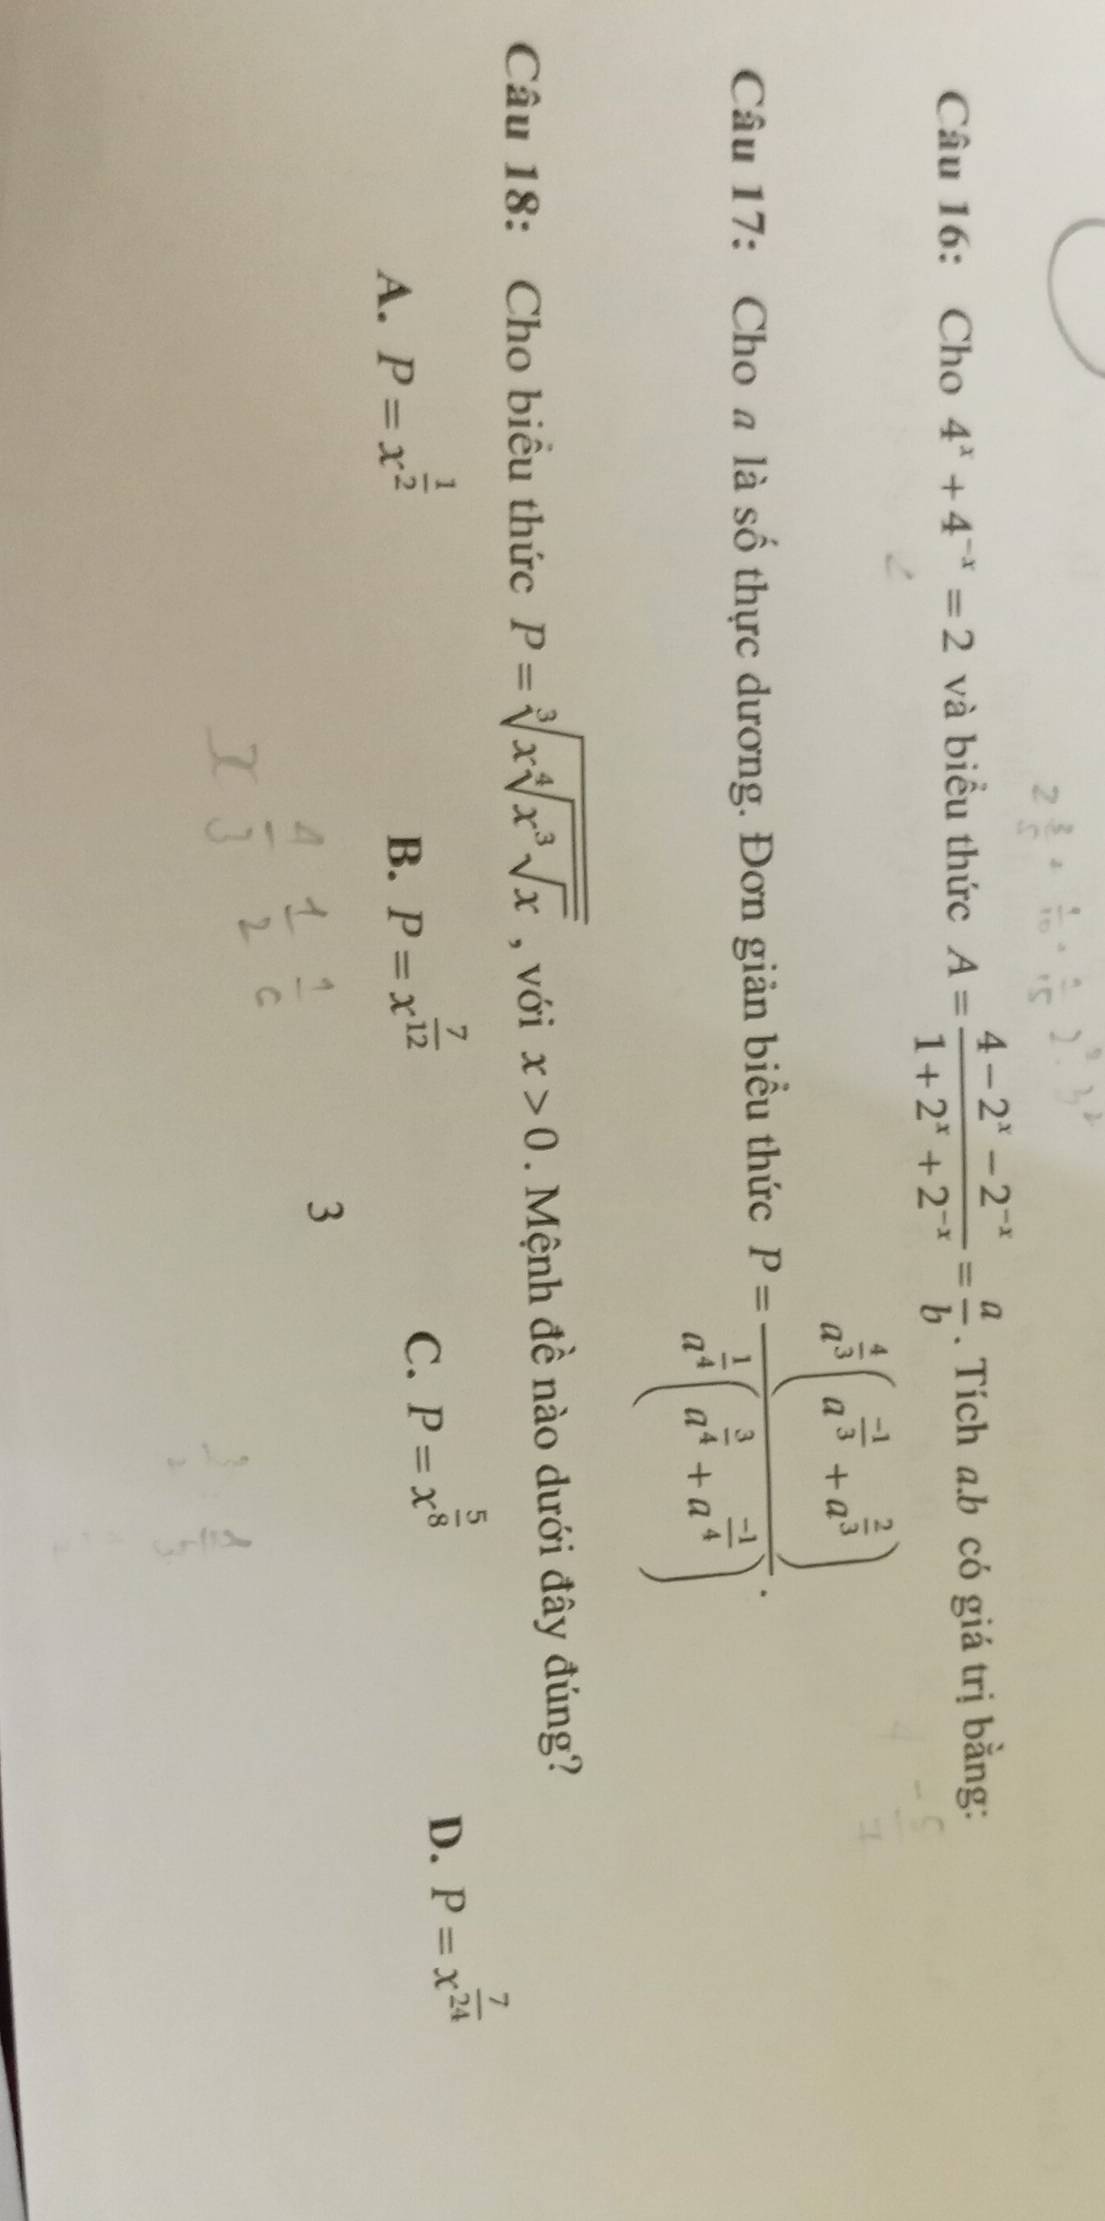 Câu 16: Cho 4^x + 4^{-x} = 2 và biểu thức A = \frac{4-2^x-2^{-x}}{1+2^x+2^{-x}} = \frac{a}{b}. Tích a.b có giá trị bằng:
Câu 17: Cho a là số thực dương. Đơn giản biểu thức P = \frac{a^{\frac{4}{3}}\left(a^{\frac{-1}{3}}+a^{\frac{2}{3}}\right)}{a^{\frac{1}{4}}\left(a^{\frac{3}{4}}+a^{\frac{-1}{4}}\right)}.
Câu 18: Cho biểu thức P = \sqrt[3]{x\sqrt[4]{x^3\sqrt{x}}}, với x > 0. Mệnh đề nào dưới đây đúng?
A. P = x^{\frac{1}{2}} B. P = x^{\frac{7}{12}} C. P = x^{\frac{5}{8}} D. P = x^{\frac{7}{24}}
3